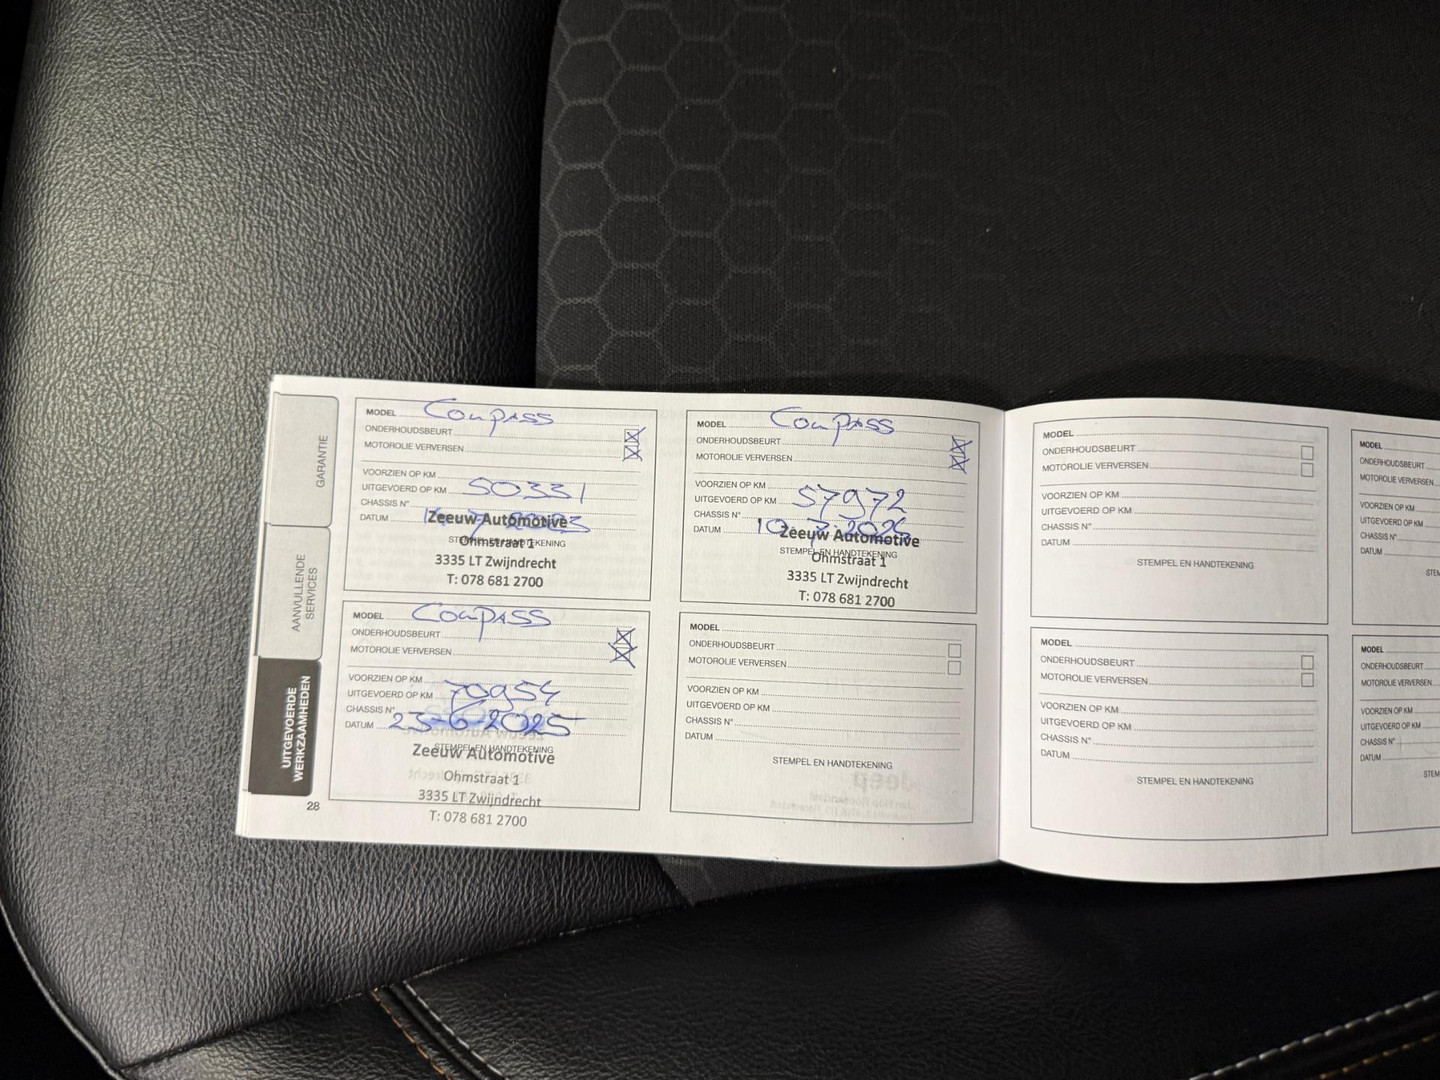 GARANTIE
AANVULLENDE
SERVICES
UITGEVOERDE
WERKZAAMHEDEN
28
MODEL Compass
ONDERHOUDSBEURT
MOTOROLIE VERVERSEN
VOORZIEN OP KM
UITGEVOERD OP KM 50331
CHASSIS N°
DATUM
STEMPEL EN HANDTEKENING
Zeeuw Automotive
Ohmstraat 1
3335 LT Zwijndrecht
T: 078 681 2700
MODEL Compass
ONDERHOUDSBEURT
MOTOROLIE VERVERSEN
VOORZIEN OP KM
UITGEVOERD OP KM 57972
CHASSIS N°
DATUM
STEMPEL EN HANDTEKENING
Zeeuw Automotive
Ohmstraat 1
3335 LT Zwijndrecht
T: 078 681 2700
MODEL Compass
ONDERHOUDSBEURT
MOTOROLIE VERVERSEN
VOORZIEN OP KM
UITGEVOERD OP KM 70954
CHASSIS N°
DATUM 23-6-2025
STEMPEL EN HANDTEKENING
Zeeuw Automotive
Ohmstraat 1
3335 LT Zwijndrecht
T: 078 681 2700
MODEL
ONDERHOUDSBEURT
MOTOROLIE VERVERSEN
VOORZIEN OP KM
UITGEVOERD OP KM
CHASSIS N°
DATUM
STEMPEL EN HANDTEKENING
MODEL
ONDERHOUDSBEURT
MOTOROLIE VERVERSEN
VOORZIEN OP KM
UITGEVOERD OP KM
CHASSIS N°
DATUM
STEMPEL EN HANDTEKENING
MODEL
ONDERHOUDSBEURT
MOTOROLIE VERVERSEN
VOORZIEN OP KM
UITGEVOERD OP KM
CHASSIS N°
DATUM
STEMPEL EN HANDTEKENING
MODEL
ONDERHOUDSBEURT
MOTOROLIE VERVERSEN
VOORZIEN OP KM
UITGEVOERD OP KM
CHASSIS N°
DATUM
STEM
MODEL
ONDERHOUDSBEURT
MOTOROLIE VERVERSEN
VOORZIEN OP KM
UITGEVOERD OP KM
CHASSIS N°
DATUM
STEM